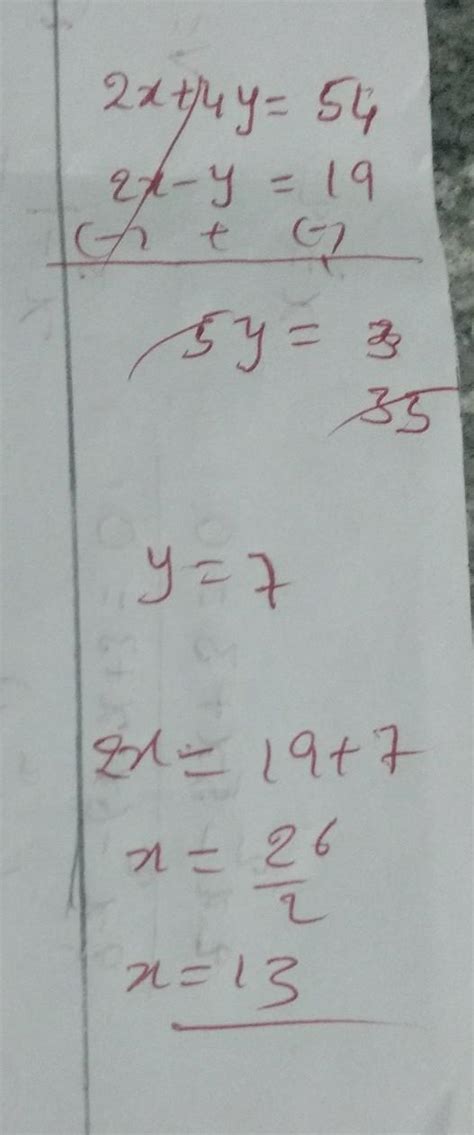 2x+4y = 54
2x-y = 19
(-) + (-)
5y = 3
35
y = 7
2x = 19+7
x = 26/2
x = 13